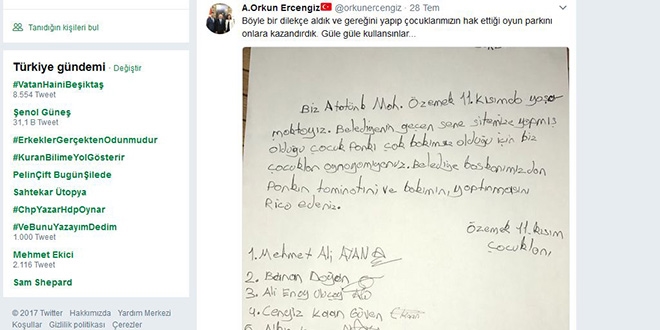 Tanıdığın kişileri bul
Türkiye gündemi · Değiştir
#VatanHainiBeşiktaş
8.554 Tweet
Şenol Güneş
31,1 B Tweet
#ErkeklerGerçektenOdunmudur
#KuranBilimeYolGösterir
PelinÇift BugünŞilede
Sahtekar Ütopya
#ChpYazarHdpOynar
#VeBunuYazayımDedim
1.000 Tweet
Mehmet Ekici
2.116 Tweet
Sam Shepard
© 2017 Twitter Hakkımızda Yardım Merkezi
Koşullar Gizlilik politikası Çerezler
A.Orkun Ercengiz @orkunercengiz · 28 Tem
Böyle bir dilekçe aldık ve gereğini yapıp çocuklarımızın hak ettiği oyun parkını
onlara kazandırdık. Güle güle kullansınlar...
Biz Atatürk Mah. Özemek 11. Kısımda yaşa-
maktayız. Belediyenin geçen sene sitemize yapmış
olduğu çocuk Parkı çok bakımsız olduğu için biz
çocuklar oynayamıyoruz. Belediye başkanımızdan
Parkın taminatini ve bakımın, yaptırmasını
Rica ederiz.
Özemek 11. Kısım
Çocukları,
1. Mehmet Ali
2. Doğan
3. Ali
4. Cengiz Kaan Güven
5.